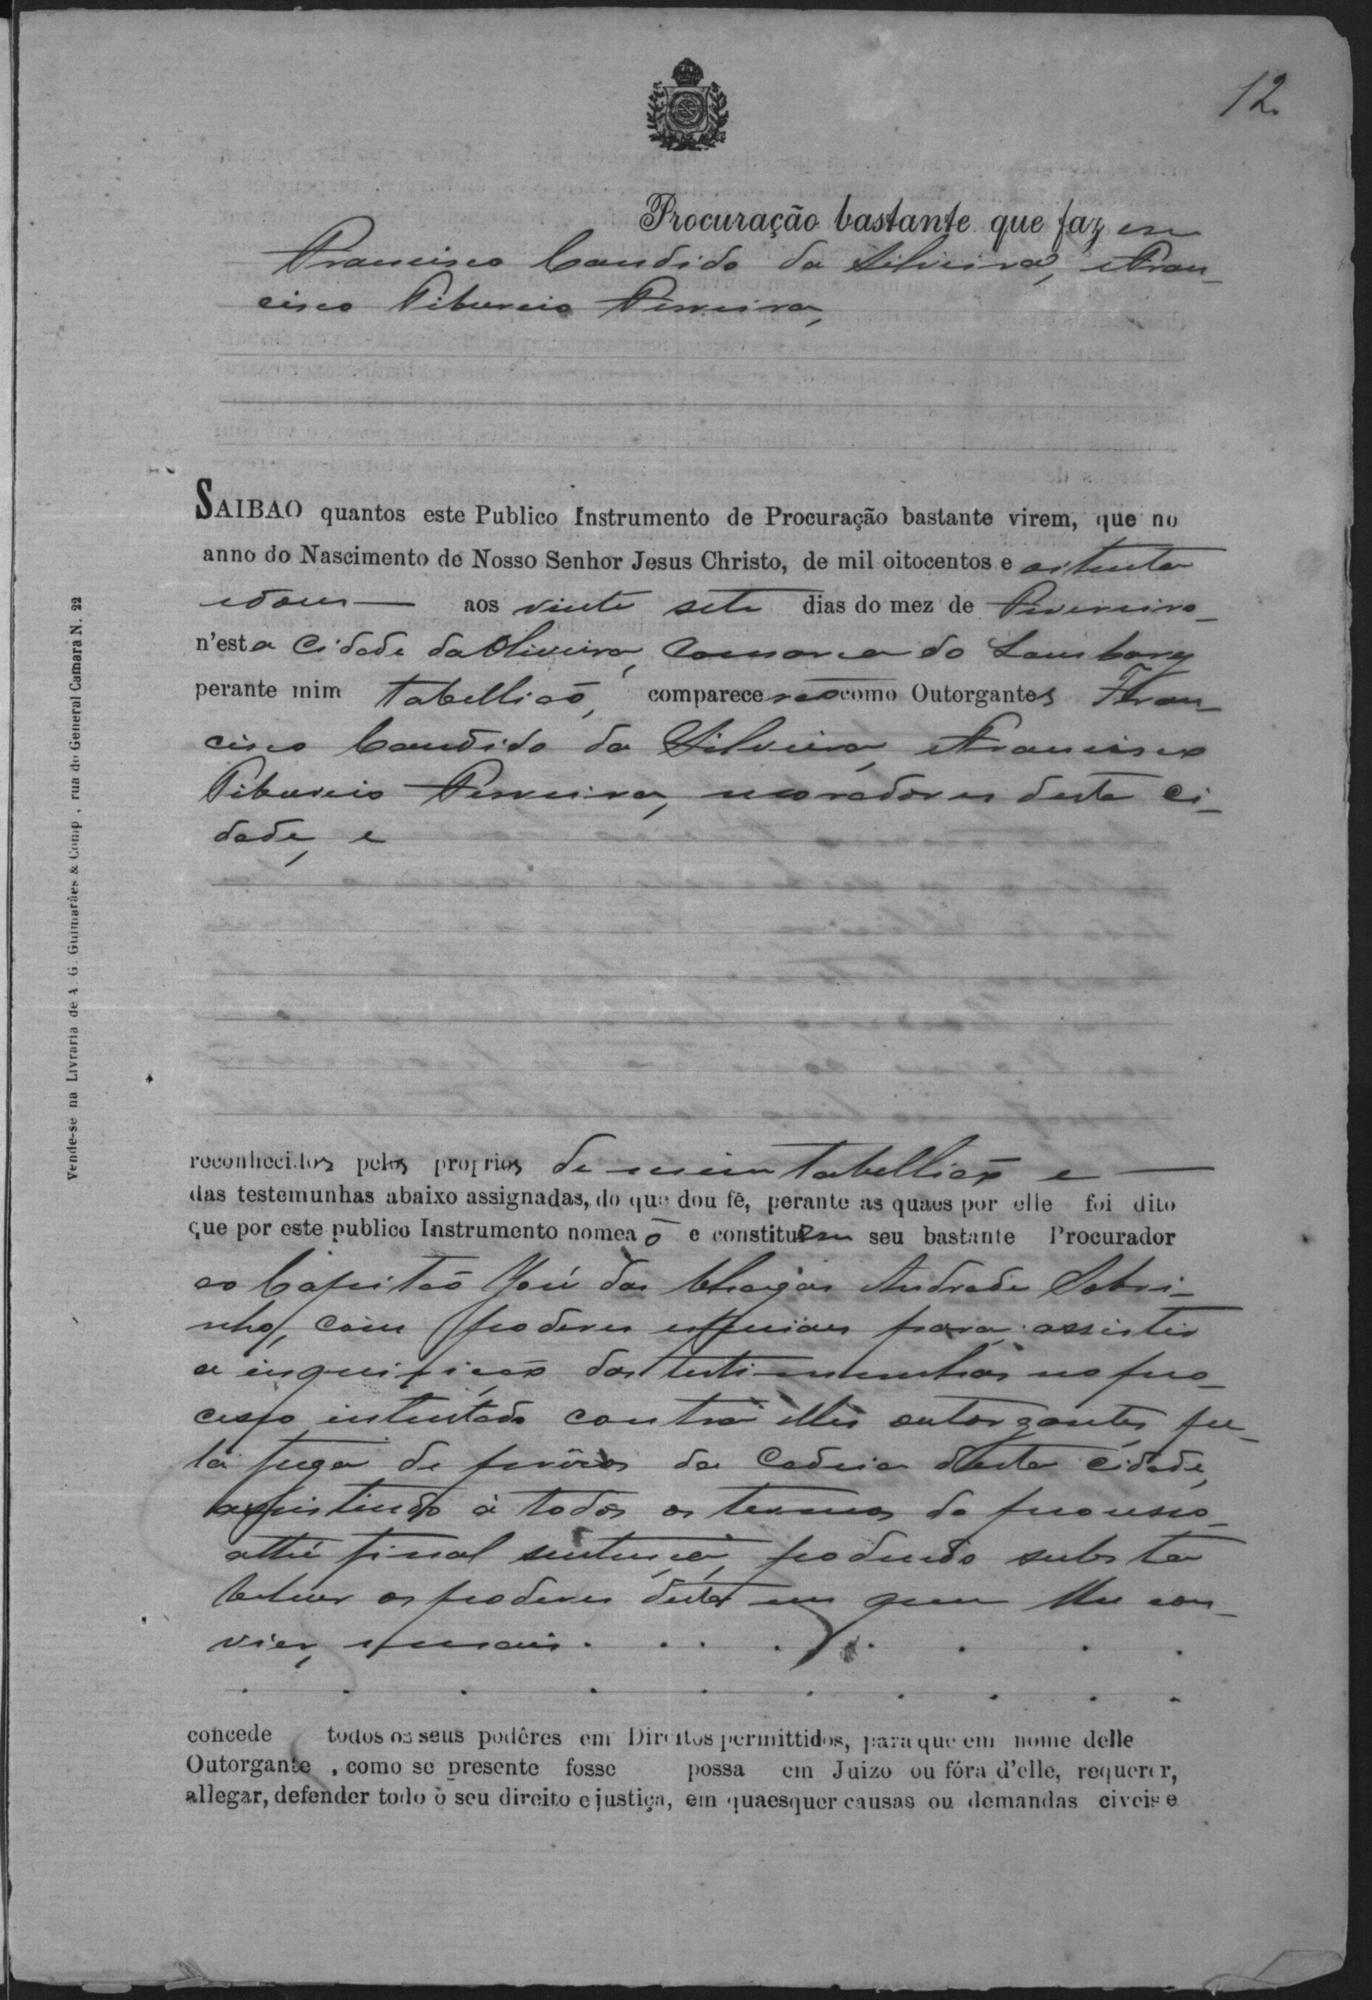 12
Procuração bastante que fazem
Francisco Candido da Silveira, e Fran-
cisco Tiburcio Ferreira,
SAIBAO quantos este Publico Instrumento de Procuração bastante virem, que no
anno do Nascimento de Nosso Senhor Jesus Christo, de mil oitocentos e oitenta
e dous — aos vinte sete dias do mez de Fevereiro
n'esta Cidade da Oliveira, Comarca do Lambary
perante mim tabellião, comparecerão como Outorgantes Fran-
cisco Candido da Silveira, e Francisco
Tiburcio Ferreira, moradores desta ci-
dade, e
reconhecidos pelos proprios de mim tabellião e —
das testemunhas abaixo assignadas, do que dou fé, perante as quaes por elle foi dito
que por este publico Instrumento nomeaõ e constituem seu bastante Procurador
ao Capitaõ José das Chagas Andrade Sobri-
nho, com poderes especiaes para assistir
a inquirição das testimunhas no pro-
cesso intentado contra elles outorgantes pe-
la fuga de prêsos da Cadeia desta cidade,
assistindo á todos os termos do processo
athé final sentença, podendo substa
belecer os poderes desta em quem lhe con-
vier, e mais . . . . . . . .
. . . . . . . . . .
concede todos os seus podêres em Direitos permittidos, para que em nome delle
Outorgante , como se presente fosse possa em Juizo ou fóra d'elle, requerer,
allegar, defender todo o seu direito e justiça, em quaesquer causas ou demandas civeis e
Vende-se na Livraria de A. G. Guimarães & Comp., rua do General Camara N. 22